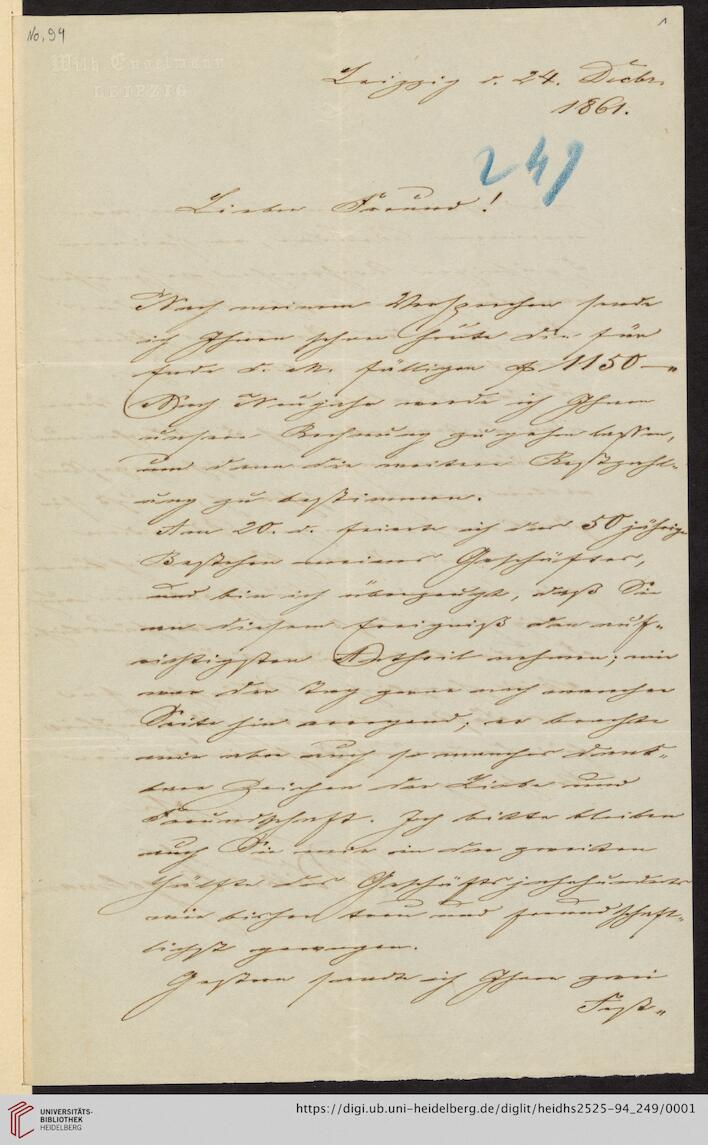 No. 94
1
Wilh. Engelmann
LEIPZIG
Leipzig d. 24. Decbr.
1861.
249
Lieber Freund!
Nach meinem Versprechen sende
ich Ihnen schon heute die für
Ende d. M. fälligen 1150 —„
Nach Neujahr werde ich Ihnen
unsere Rechnung zugehn lassen,
und dann die weitere Restzahl-
ung zu bestimmen.
Am 20. d. feierte ich das 50 jährige
Bestehen meines Geschäftes,
und bin ich überzeugt, daß Sie
an diesem Ereigniß den auf-
richtigsten Antheil nehmen; mir
war der Tag ganz nach mancher
Seite hin anregend; er brachte
mir aber auch so manches dank-
bare Zeichen der Liebe und
Freundschaft. Ich bitte bleiben
auch Sie mir in der zweiten
Hälfte des Geschäftsjahrhunderts
wie bisher treu und freundschaft-
lichst gewogen.
Gestern sandte ich Ihnen zwei
Fest-
UNIVERSITÄTS-
BIBLIOTHEK
HEIDELBERG
https://digi.ub.uni-heidelberg.de/diglit/heidhs2525-94_249/0001